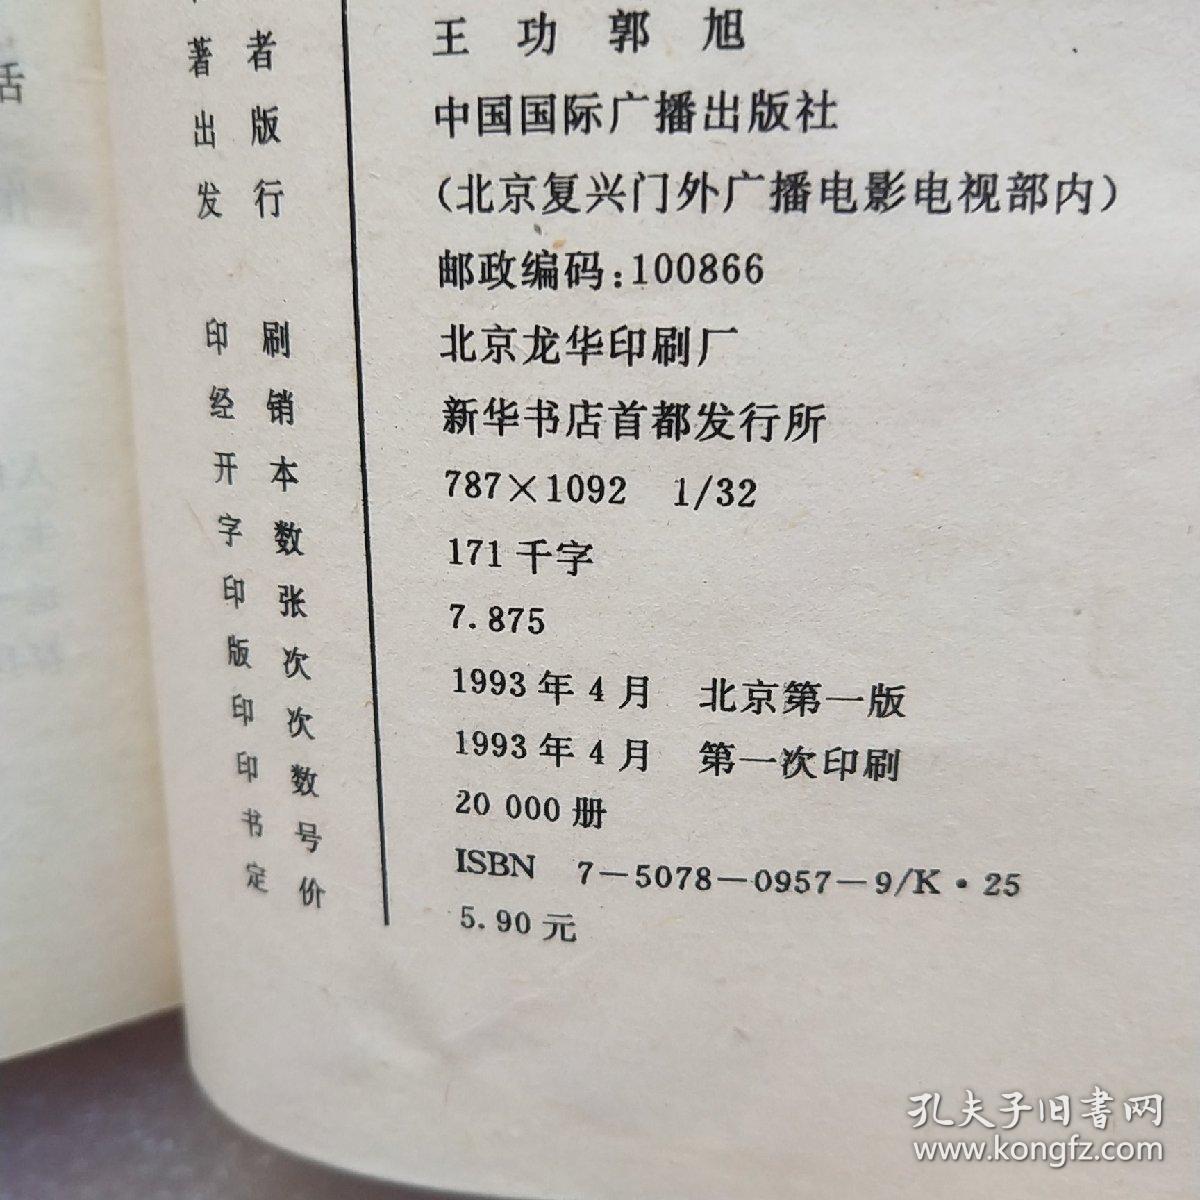 著者 王功 郭旭
出版 中国国际广播出版社
发行 (北京复兴门外广播电影电视部内)
邮政编码:100866
印刷 北京龙华印刷厂
经销 新华书店首都发行所
开本 787×1092 1/32
字数 171千字
印张 7.875
版次 1993年4月 北京第一版
印次 1993年4月 第一次印刷
印数 20 000册
书号 ISBN 7-5078-0957-9/K·25
定价 5.90元
孔夫子旧書网
www.kongfz.com